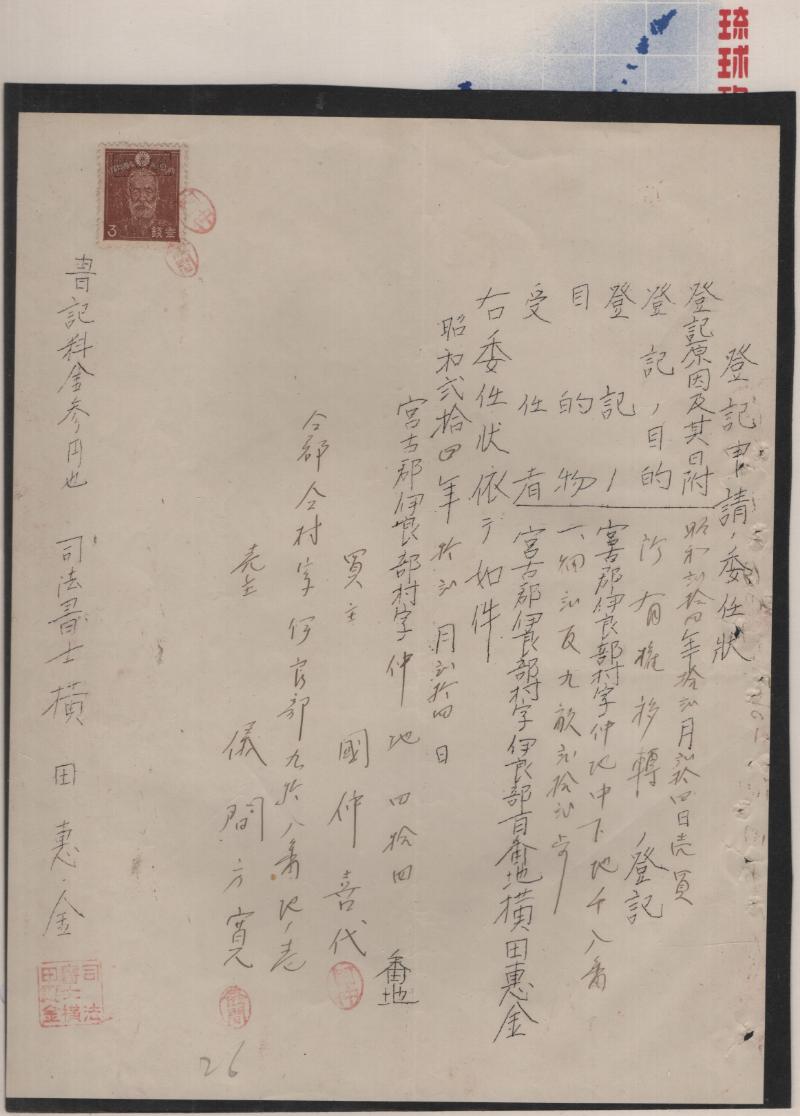 琉球
登記申請ノ委任状
登記原因及其日附 昭和弐拾四年拾弐月弐拾四日売買
登記ノ目的 所有権移転ノ登記
登記ノ 宮古郡伊良部村字仲地中下地千八番
目的物 一、畑弐反九畝弐拾弐歩
受任者 宮古郡伊良部村字伊良部百番地横田惠金
右委任状依テ如件
昭和弐拾四年拾弐月弐拾四日
宮古郡伊良部村字仲地四拾四番地
買主 國仲喜代
仝郡仝村字伊良部九拾八番地ノ壱
売主 儀間方寛
書記料金参円也 司法書士横田惠金
3 参銭
國仲
儀間
國仲
儀間
司法書士横田惠金
26